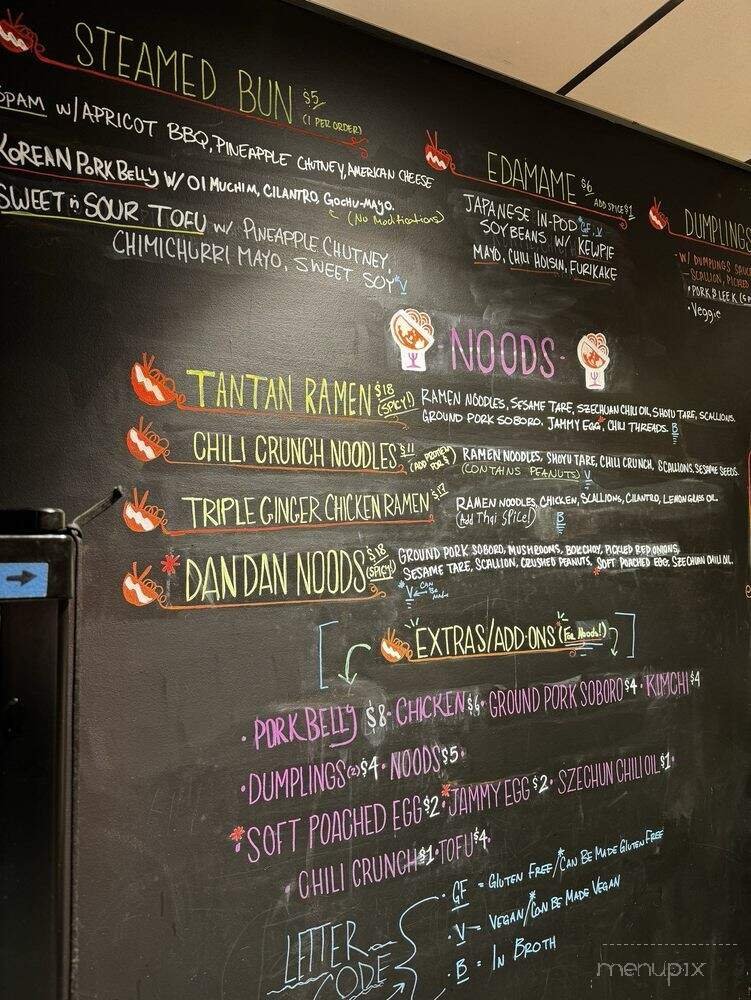 STEAMED BUN $5
(1 PER ORDER)
SPAM W/APRICOT BBQ, PINEAPPLE CHUTNEY, AMERICAN CHEESE
KOREAN PORK BELLY W/ OI MUCHIM, CILANTRO, GOCHU-MAYO.
(No Modifications)
SWEET n SOUR TOFU W/ PINEAPPLE CHUTNEY,
CHIMICHURRI MAYO, SWEET SOY *V
EDAMAME $6 ADD SPICE $1
JAPANESE IN-POD *GF V
SOYBEANS W/ KEWPIE
MAYO, CHILI HOISIN, FURIKAKE
DUMPLINGS
W/ DUMPLINGS SAUCE
SCALLION, PICKLED
• PORK & LEEK
• Veggie
NOODS
TANTAN RAMEN $18 (SPICY!) RAMEN NOODLES, SESAME TARE, SZECHUAN CHILI OIL, SHOYU TARE, SCALLIONS.
GROUND PORK SOBORO, JAMMY EGG*, CHILI THREADS. B
CHILI CRUNCH NOODLES $11 (ADD PROTEIN FOR $) RAMEN NOODLES, SHOYU TARE, CHILI CRUNCH, SCALLIONS, SESAME SEEDS.
(CONTAINS PEANUTS) V
TRIPLE GINGER CHICKEN RAMEN $17 RAMEN NOODLES, CHICKEN, SCALLIONS, CILANTRO, LEMON GRASS OIL.
(Add Thai Spice!) B
*DAN DAN NOODS $18 (SPICY!) GROUND PORK SOBORO, MUSHROOMS, BOK CHOY, PICKLED RED ONIONS,
SESAME TARE, SCALLION, CRUSHED PEANUTS, *SOFT POACHED EGG, SZECHUAN CHILI OIL.
*V
EXTRAS/ADD-ONS (For Noods!)
• PORK BELLY $8 • CHICKEN $6 • GROUND PORK SOBORO $4 • KIMCHI $4
• DUMPLINGS (2) $4 • NOODS $5 •
*• SOFT POACHED EGG $2 • *JAMMY EGG $2 • SZECHUN CHILI OIL $1 •
• CHILI CRUNCH $1 • TOFU $4 •
LETTER CODE
• GF = GLUTEN FREE/*CAN BE MADE GLUTEN FREE
• V = VEGAN/*CAN BE MADE VEGAN
• B = IN BROTH
menupix